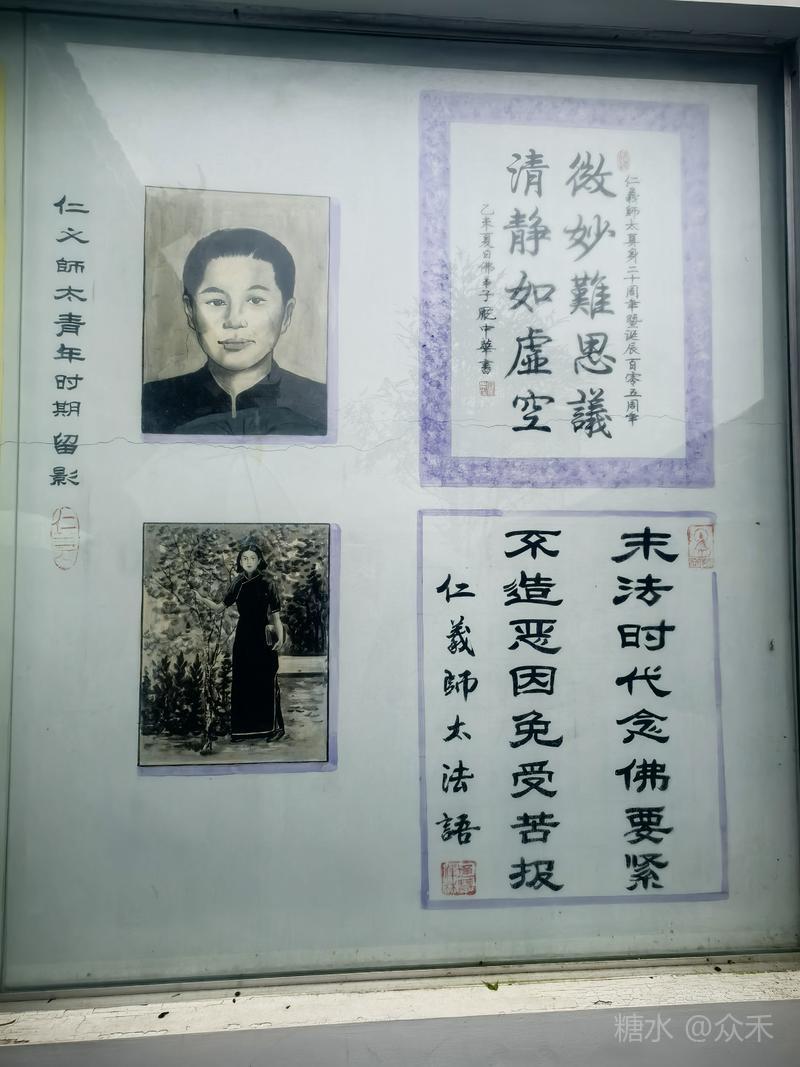 仁義師太真身二十周年暨誕辰百零五周年
微妙難思議
清静如虛空
乙未夏日佛弟子庞中華書
末法时代念佛要紧
不造恶因免受苦报
仁義師太法語
仁义師太青年时期留影
糖水 @众禾